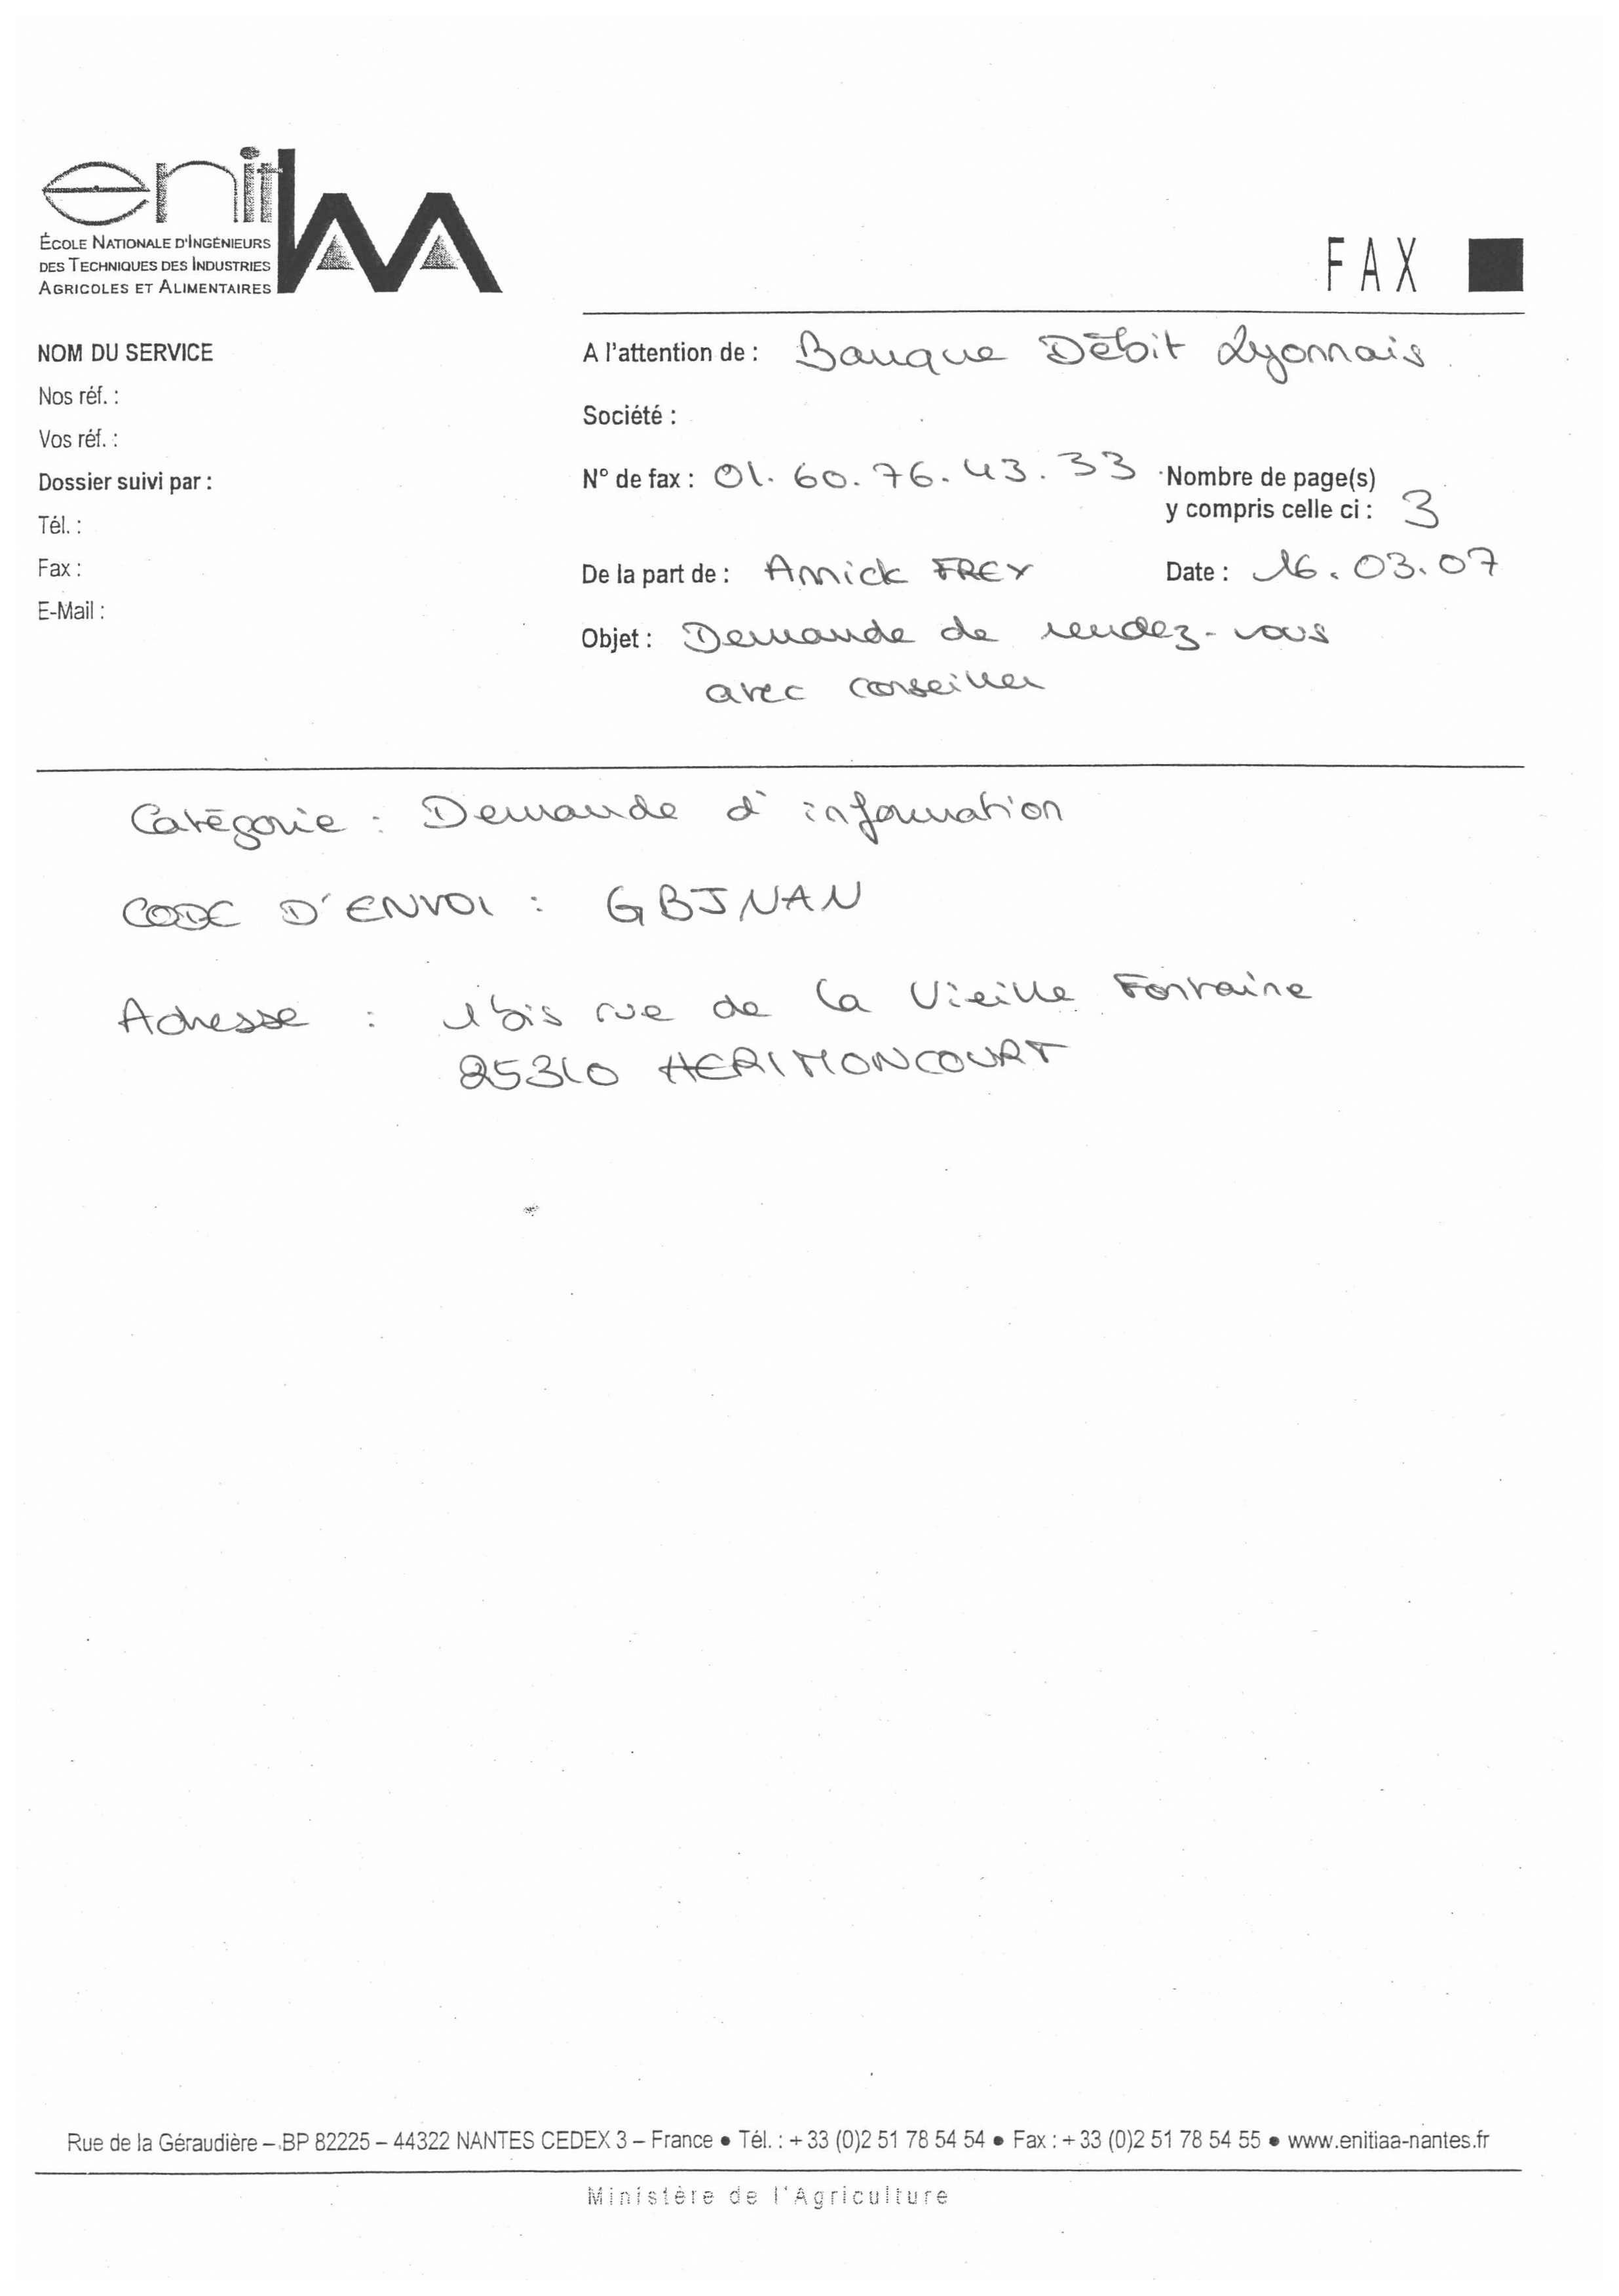 enitIAA
ÉCOLE NATIONALE D'INGÉNIEURS
DES TECHNIQUES DES INDUSTRIES
AGRICOLES ET ALIMENTAIRES
FAX
NOM DU SERVICE
Nos réf. :
Vos réf. :
Dossier suivi par :
Tél. :
Fax :
E-Mail :
A l'attention de : Banque Débit Lyonnais
Société :
N° de fax : 01.60.76.43.33
Nombre de page(s)
y compris celle ci : 3
De la part de : Annick FREY
Date : 16.03.07
Objet : Demande de rendez-vous
avec conseiller
Catégorie : Demande d'information
CODE D'ENVOI : GBJNAN
Adresse : 1 bis rue de la Vieille Fontaine
25310 HERIMONCOURT
Rue de la Géraudière – BP 82225 – 44322 NANTES CEDEX 3 – France • Tél. : + 33 (0)2 51 78 54 54 • Fax : + 33 (0)2 51 78 54 55 • www.enitiaa-nantes.fr
Ministère de l'Agriculture